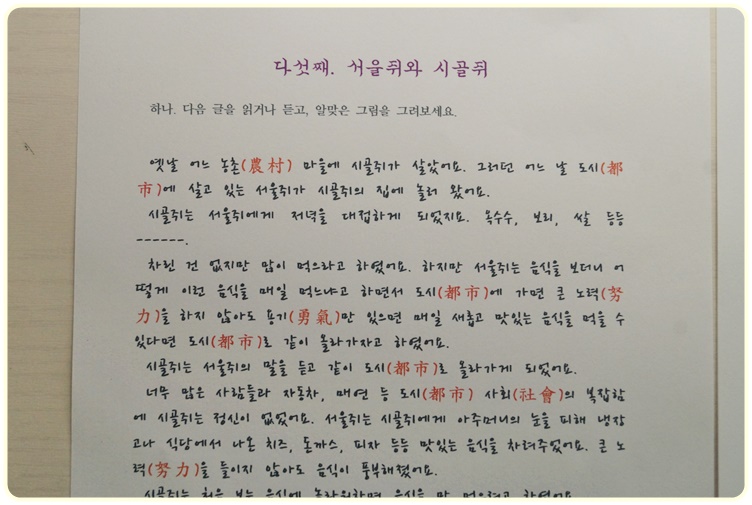 다섯째. 서울쥐와 시골쥐
하나. 다음 글을 읽거나 듣고, 알맞은 그림을 그려보세요.
옛날 어느 농촌(農村) 마을에 시골쥐가 살았어요. 그러던 어느 날 도시(都
市)에 살고 있는 서울쥐가 시골쥐의 집에 놀러 왔어요.
시골쥐는 서울쥐에게 저녁을 대접하게 되었지요. 옥수수, 보리, 쌀 등등
------.
차린 건 없지만 많이 먹으라고 하였어요. 하지만 서울쥐는 음식을 보더니 어
떻게 이런 음식을 매일 먹느냐고 하면서 도시(都市)에 가면 큰 노력(努
力)을 하지 않아도 용기(勇氣)만 있으면 매일 새롭고 맛있는 음식을 먹을 수
있다면 도시(都市)로 같이 올라가자고 하였어요.
시골쥐는 서울쥐의 말을 듣고 같이 도시(都市)로 올라가게 되었어요.
너무 많은 사람들과 자동차, 매연 등 도시(都市) 사회(社會)의 복잡함
에 시골쥐는 정신이 없었어요. 서울쥐는 시골쥐에게 아주머니의 눈을 피해 냉장
고나 식당에서 나온 치즈, 돈까스, 피자 등등 맛있는 음식을 차려주었어요. 큰 노
력(努力)을 들이지 않아도 음식이 풍부해졌어요.
시골쥐는 처음 보는 음식에 놀라워하며 음식을 막 먹으려고 하였어요.